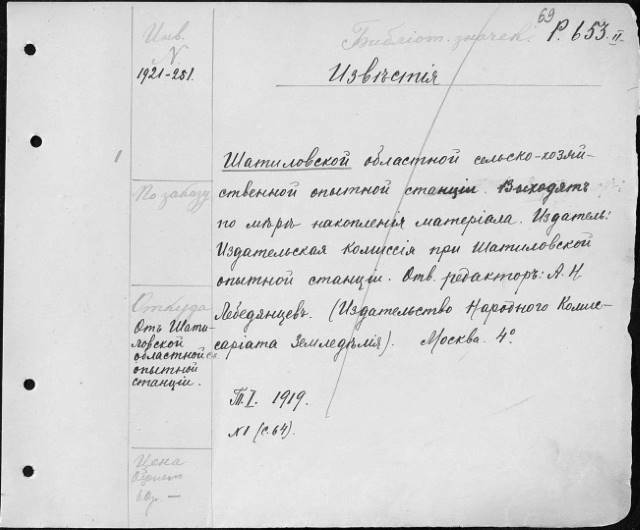 69
Инв. Библіот. значек: Р. 653. II
N
1921-251.
Извѣстія
1
Шатиловской областной сельско-хозяй-
ственной опытной станціи. Выходятъ
По заказу
по мѣрѣ накопленія матеріала. Издатель:
Издательская Комиссія при Шатиловской
опытной станціи. Отв. редакторъ: А. Н.
Лебедянцевъ. (Издательство Народного Комис-
саріата Земледѣлія). Москва. 4º
Откуда
Отъ Шати-
ловской
областной с.х.
опытной
станціи.
Т. I. 1919.
N 1 (с. 64).
Цена
60р. —